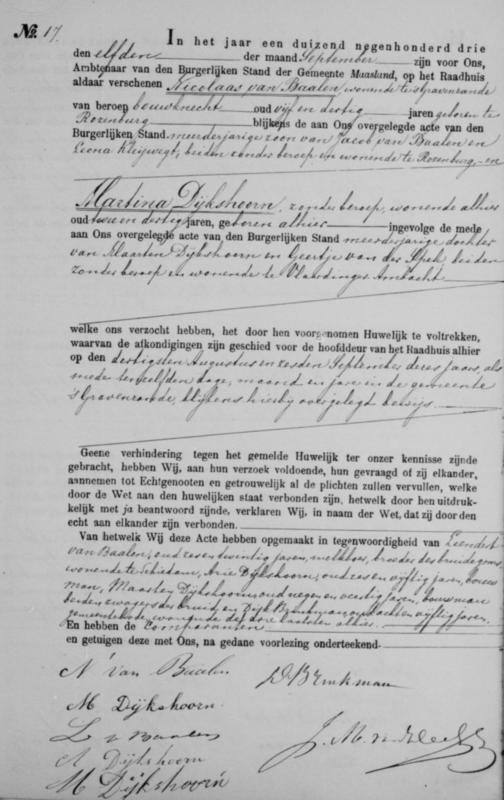 No. 17.
In het jaar een duizend negenhonderd drie
den elfden der maand September zijn voor Ons,
Ambtenaar van den Burgerlijken Stand der Gemeente Maasland, op het Raadhuis
aldaar verschenen Nicolaas van Baalen, wonende te 's Gravenzande
van beroep bouwknecht oud vijf en dertig jaren geboren te
Rozenburg blijkens de aan Ons overgelegde acte van den
Burgerlijken Stand meerderjarige zoon van Jacob van Baalen en
Leena Kleijwegt, beiden zonder beroep en wonende te Rozenburg, en
Martina Dijkshoorn, zonder beroep, wonende alhier
oud twee en dertig jaren, geboren alhier ingevolge de mede
aan Ons overgelegde acte van den Burgerlijken Stand meerderjarige dochter
van Maarten Dijkshoorn en Geertje van der Spek, beiden
zonder beroep en wonende te Vlaardinger Ambacht
welke ons verzocht hebben, het door hen voorgenomen Huwelijk te voltrekken,
waarvan de afkondigingen zijn geschied voor de hoofddeur van het Raadhuis alhier
op den dertigsten Augustus en zesden September dezes jaars, als
mede ten zelfden dage, maand en jare in de gemeente
's Gravenzande, blijkens hierbij overgelegd bewijs.
Geene verhindering tegen het gemelde Huwelijk ter onzer kennisse zijnde
gebracht, hebben Wij, aan hun verzoek voldoende, hun gevraagd of zij elkander,
aannemen tot Echtgenooten en getrouwelijk al de plichten zullen vervullen, welke
door de Wet aan den huwelijken staat verbonden zijn, hetwelk door hen uitdruk-
kelijk met ja beantwoord zijnde, verklaren Wij, in naam der Wet, dat zij door den
echt aan elkander zijn verbonden.
Van hetwelk Wij deze Acte hebben opgemaakt in tegenwoordigheid van Leendert
van Baalen, oud zes en twintig jaren, melkboer, broeder des bruidegoms,
wonende te Schiedam, Arie Dijkshoorn, oud zes en vijftig jaren, bouw
man, Maarten Dijkshoorn, oud negen en veertig jaren, bouwman
beiden zwagers der bruid en Dirk Brinkman, oud acht en vijftig jaren,
gemeentebode, wonende de drie laatsten alhier.
En hebben de Comparanten
en getuigen deze met Ons, na gedane voorlezing onderteekend.
N van Baalen
D. Brinkman
M Dijkshoorn.
L v Baalen
A Dijkshoorn
M Dijkshoorn